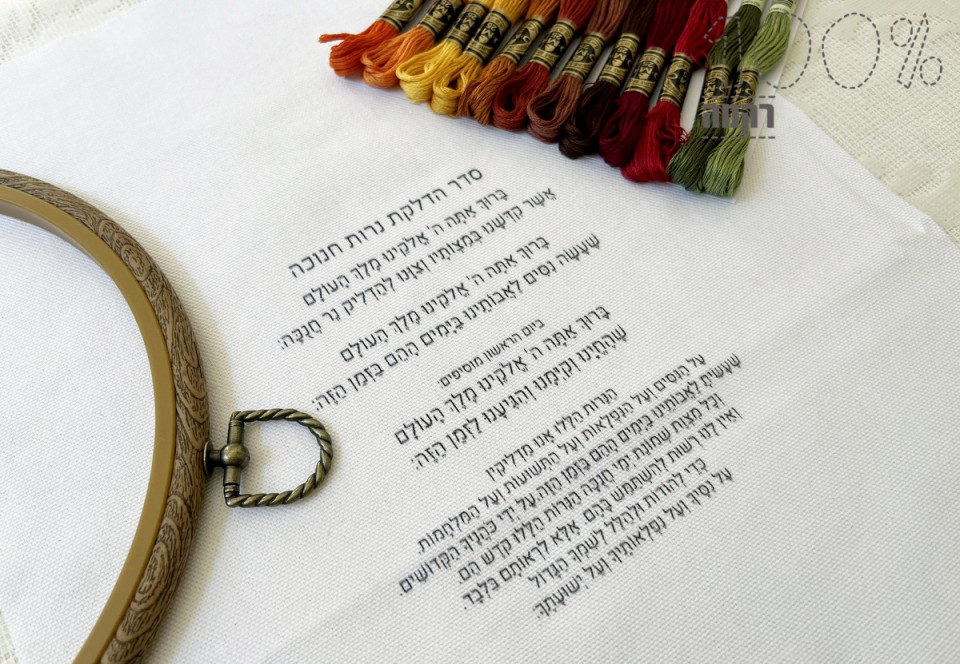 100%
רקמה
סדר הדלקת נרות חנוכה
בָּרוּךְ אַתָּה ה' אֱלֹקֵינוּ מֶלֶךְ הָעוֹלָם
אֲשֶׁר קִדְּשָׁנוּ בְּמִצְוֹתָיו וְצִוָּנוּ לְהַדְלִיק נֵר חֲנֻכָּה:
בָּרוּךְ אַתָּה ה' אֱלֹקֵינוּ מֶלֶךְ הָעוֹלָם
שֶׁעָשָׂה נִסִּים לַאֲבוֹתֵינוּ בַּיָּמִים הָהֵם בַּזְּמַן הַזֶּה:
ביום הראשון מוסיפים:
בָּרוּךְ אַתָּה ה' אֱלֹקֵינוּ מֶלֶךְ הָעוֹלָם
שֶׁהֶחֱיָנוּ וְקִיְּמָנוּ וְהִגִּיעָנוּ לַזְּמַן הַזֶּה:
הַנֵּרוֹת הַלָּלוּ אָנוּ מַדְלִיקִין
עַל הַנִּסִּים וְעַל הַנִּפְלָאוֹת וְעַל הַתְּשׁוּעוֹת וְעַל הַמִּלְחָמוֹת
שֶׁעָשִׂיתָ לַאֲבוֹתֵינוּ בַּיָּמִים הָהֵם בַּזְּמַן הַזֶּה, עַל יְדֵי כֹּהֲנֶיךָ הַקְּדוֹשִׁים.
וְכָל מִצְוַת שְׁמוֹנַת יְמֵי חֲנֻכָּה הַנֵּרוֹת הַלָּלוּ קֹדֶשׁ הֵם.
וְאֵין לָנוּ רְשׁוּת לְהִשְׁתַּמֵּשׁ בָּהֶם. אֶלָּא לִרְאוֹתָם בִּלְבָד.
כְּדֵי לְהוֹדוֹת וּלְהַלֵּל לְשִׁמְךָ הַגָּדוֹל
עַל נִסֶּיךָ וְעַל נִפְלְאוֹתֶיךָ וְעַל יְשׁוּעָתֶךָ: